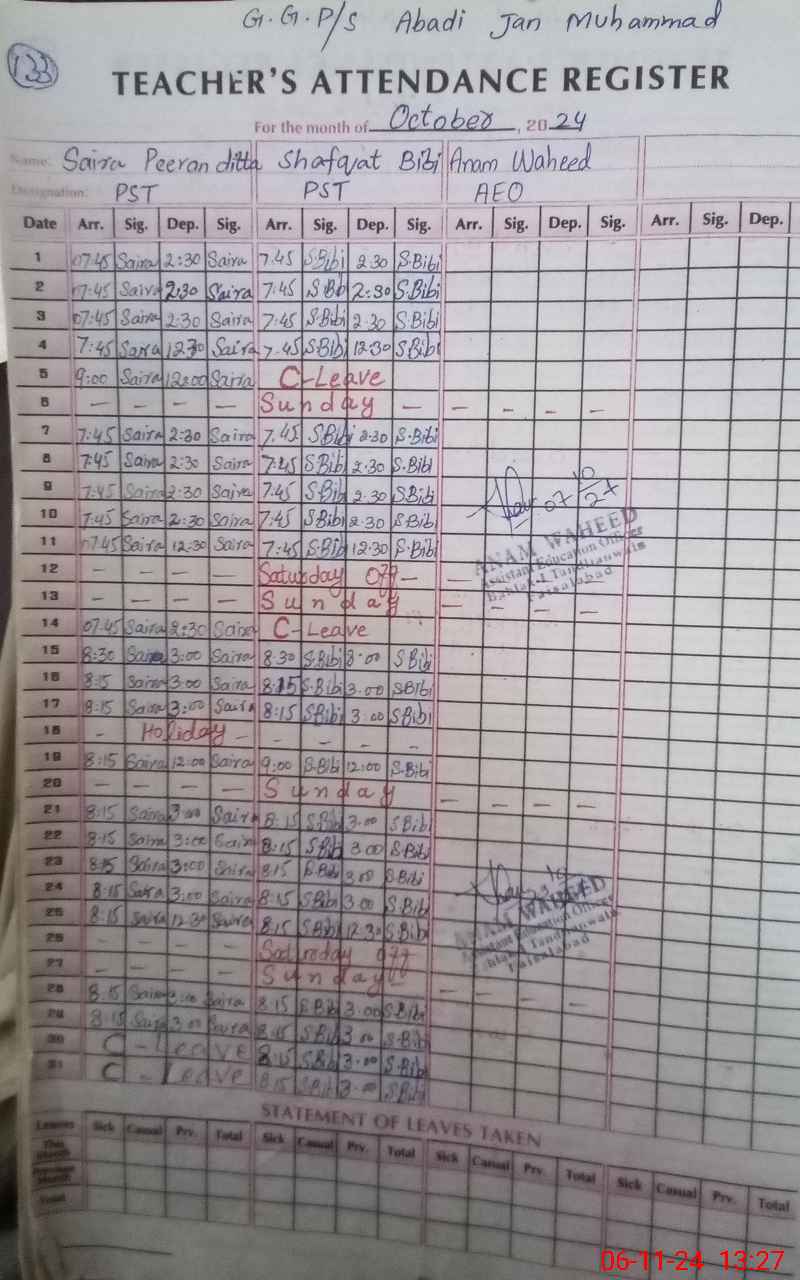 G.G.P/S Abadi Jan Muhammad
133
TEACHER'S ATTENDANCE REGISTER
For the month of October, 2024
Name: Saira Peeran ditta Shafqat Bibi Anam Waheed
Designation: PST PST AEO
Date Arr. Sig. Dep. Sig. Arr. Sig. Dep. Sig. Arr. Sig. Dep. Sig. Arr. Sig. Dep.
1 07:45 Saira 2:30 Saira 7.45 S.Bibi 2.30 S.Bibi
2 07:45 Saira 2:30 Saira 7.45 S.Bib 2:30 S.Bibi
3 07:45 Saira 2:30 Saira 7:45 S.Bibi 2.30 S.Bibi
4 7:45 Saira 12:30 Saira 7.45 S.Bibi 12:30 S.Bibi
5 9:00 Saira 12:00 Saira C-Leave
6 – – – – Sunday – – – – –
7 7:45 Saira 2:30 Saira 7.45 S.Bibi 2:30 S.Bibi
8 7:45 Saira 2:30 Saira 7:45 S.Bibi 2.30 S.Bibi
9 7:45 Saira 2:30 Saira 7.45 S.Bibi 2.30 S.Bibi
10 7:45 Saira 2:30 Saira 7:45 S.Bibi 2.30 S.Bibi
07 10/24
11 07:45 Saira 12:30 Saira 7:45 S.Bibi 12:30 S.Bibi
ANAM WAHEED
Assistant Education Officer
Bahlak-I Tandlianwala
Faisalabad
12 – – – – Saturday Off – –
13 – – – – Sunday – – – –
14 07:45 Saira 2:30 Saira C-Leave
15 8:30 Saira 3:00 Saira 8.30 S.Bibi 3.00 S.Bibi
16 8:15 Saira 3:00 Saira 8:15 S.Bibi 3.00 S.Bibi
17 8:15 Saira 3:00 Saira 8:15 S.Bibi 3:00 S.Bibi
18 – Holiday – – – – –
19 8:15 Saira 12:00 Saira 9:00 S.Bibi 12:00 S.Bibi
20 – – – – Sunday – – – –
21 8:15 Saira 3:00 Saira 8:15 S.Bib 3.00 S.Bibi
22 8:15 Saira 3:00 Saira 8:15 S.Bib 3.00 S.Bibi
23 8:15 Saira 3:00 Saira 8:15 S.Bib 3.00 S.Bibi
24 8:15 Saira 3:00 Saira 8:15 S.Bibi 3.00 S.Bibi
25 8:15 Saira 12:30 Saira 8.15 S.Bibi 12.30 S.Bibi
ANAM WAHEED
Assistant Education Officer
Bahlak-I Tandlianwala
Faisalabad
26 – – – – Saturday off
27 – – – – Sunday – – – – –
28 8:15 Saira 3:00 Saira 8:15 S.Bibi 3.00 S.Bibi
29 8:15 Saira 3:00 Saira 8:15 S.Bibi 3.00 S.Bibi
30 C-Leave 8:15 S.Bibi 3.00 S.Bibi
31 C-Leave 8:15 S.Bibi 3.00 S.Bibi
STATEMENT OF LEAVES TAKEN
Leaves Sick Casual Prv. Total Sick Casual Prv. Total Sick Casual Prv. Total Sick Casual Prv. Total
This Month
Previous Month
Total
06-11-24 13:27